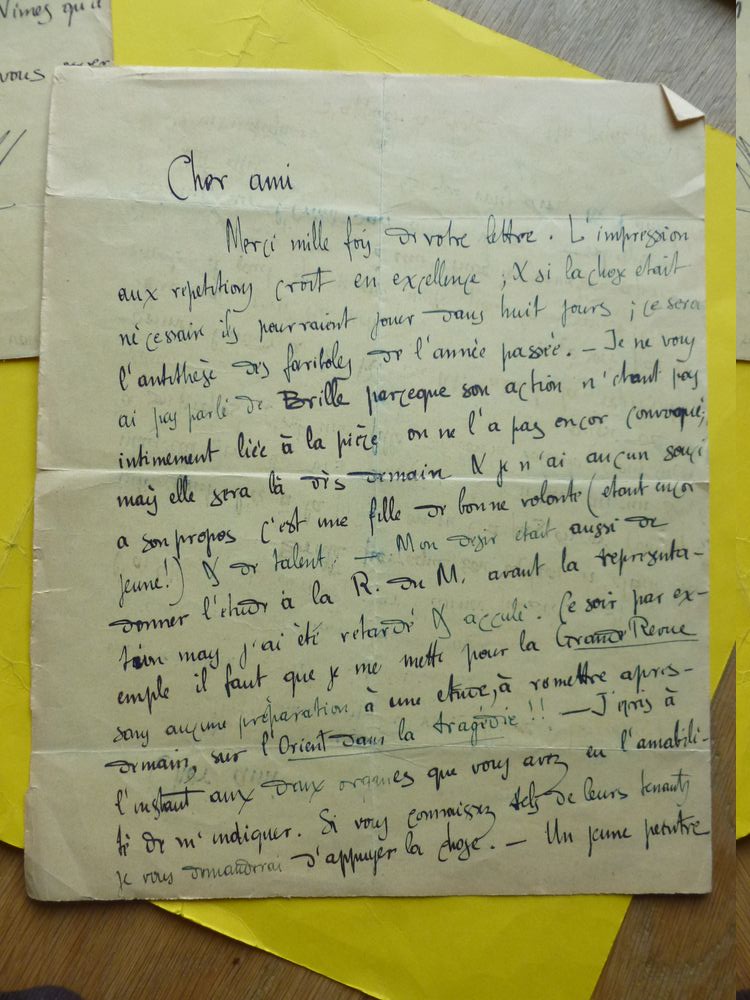 Nimes qu'il
vous
Cher ami
Merci mille fois de votre lettre. L'impression
aux repetitions croît en excellence ; & si la chose etait
nécessaire ils pourraient jouer dans huit jours ; ce sera
l'antithèse des fariboles de l'année passée. — Je ne vous
ai pas parlé de Brille parceque son action n'etant pas
intimement liée à la pièce on ne l'a pas encor convoquée,
mais elle sera là dès demain & je n'ai aucun souci
a son propos c'est une fille de bonne volonté (etant encor
jeune!) & de talent. — Mon desir etait aussi de
donner l'etude à la R. du M. avant la représenta-
tion mais j'ai été retardé & acculé. Ce soir par ex-
emple il faut que je me mette pour la Grande Revue
sans aucune préparation à une etude, à remettre apres-
demain, sur l'Orient dans la tragédie !! — J'écris à
l'instant aux deux organes que vous avez eu l'amabili-
té de m'indiquer. Si vous connaissez tels de leurs tenants
je vous demanderai d'appuyer la chose. — Un jeune peintre